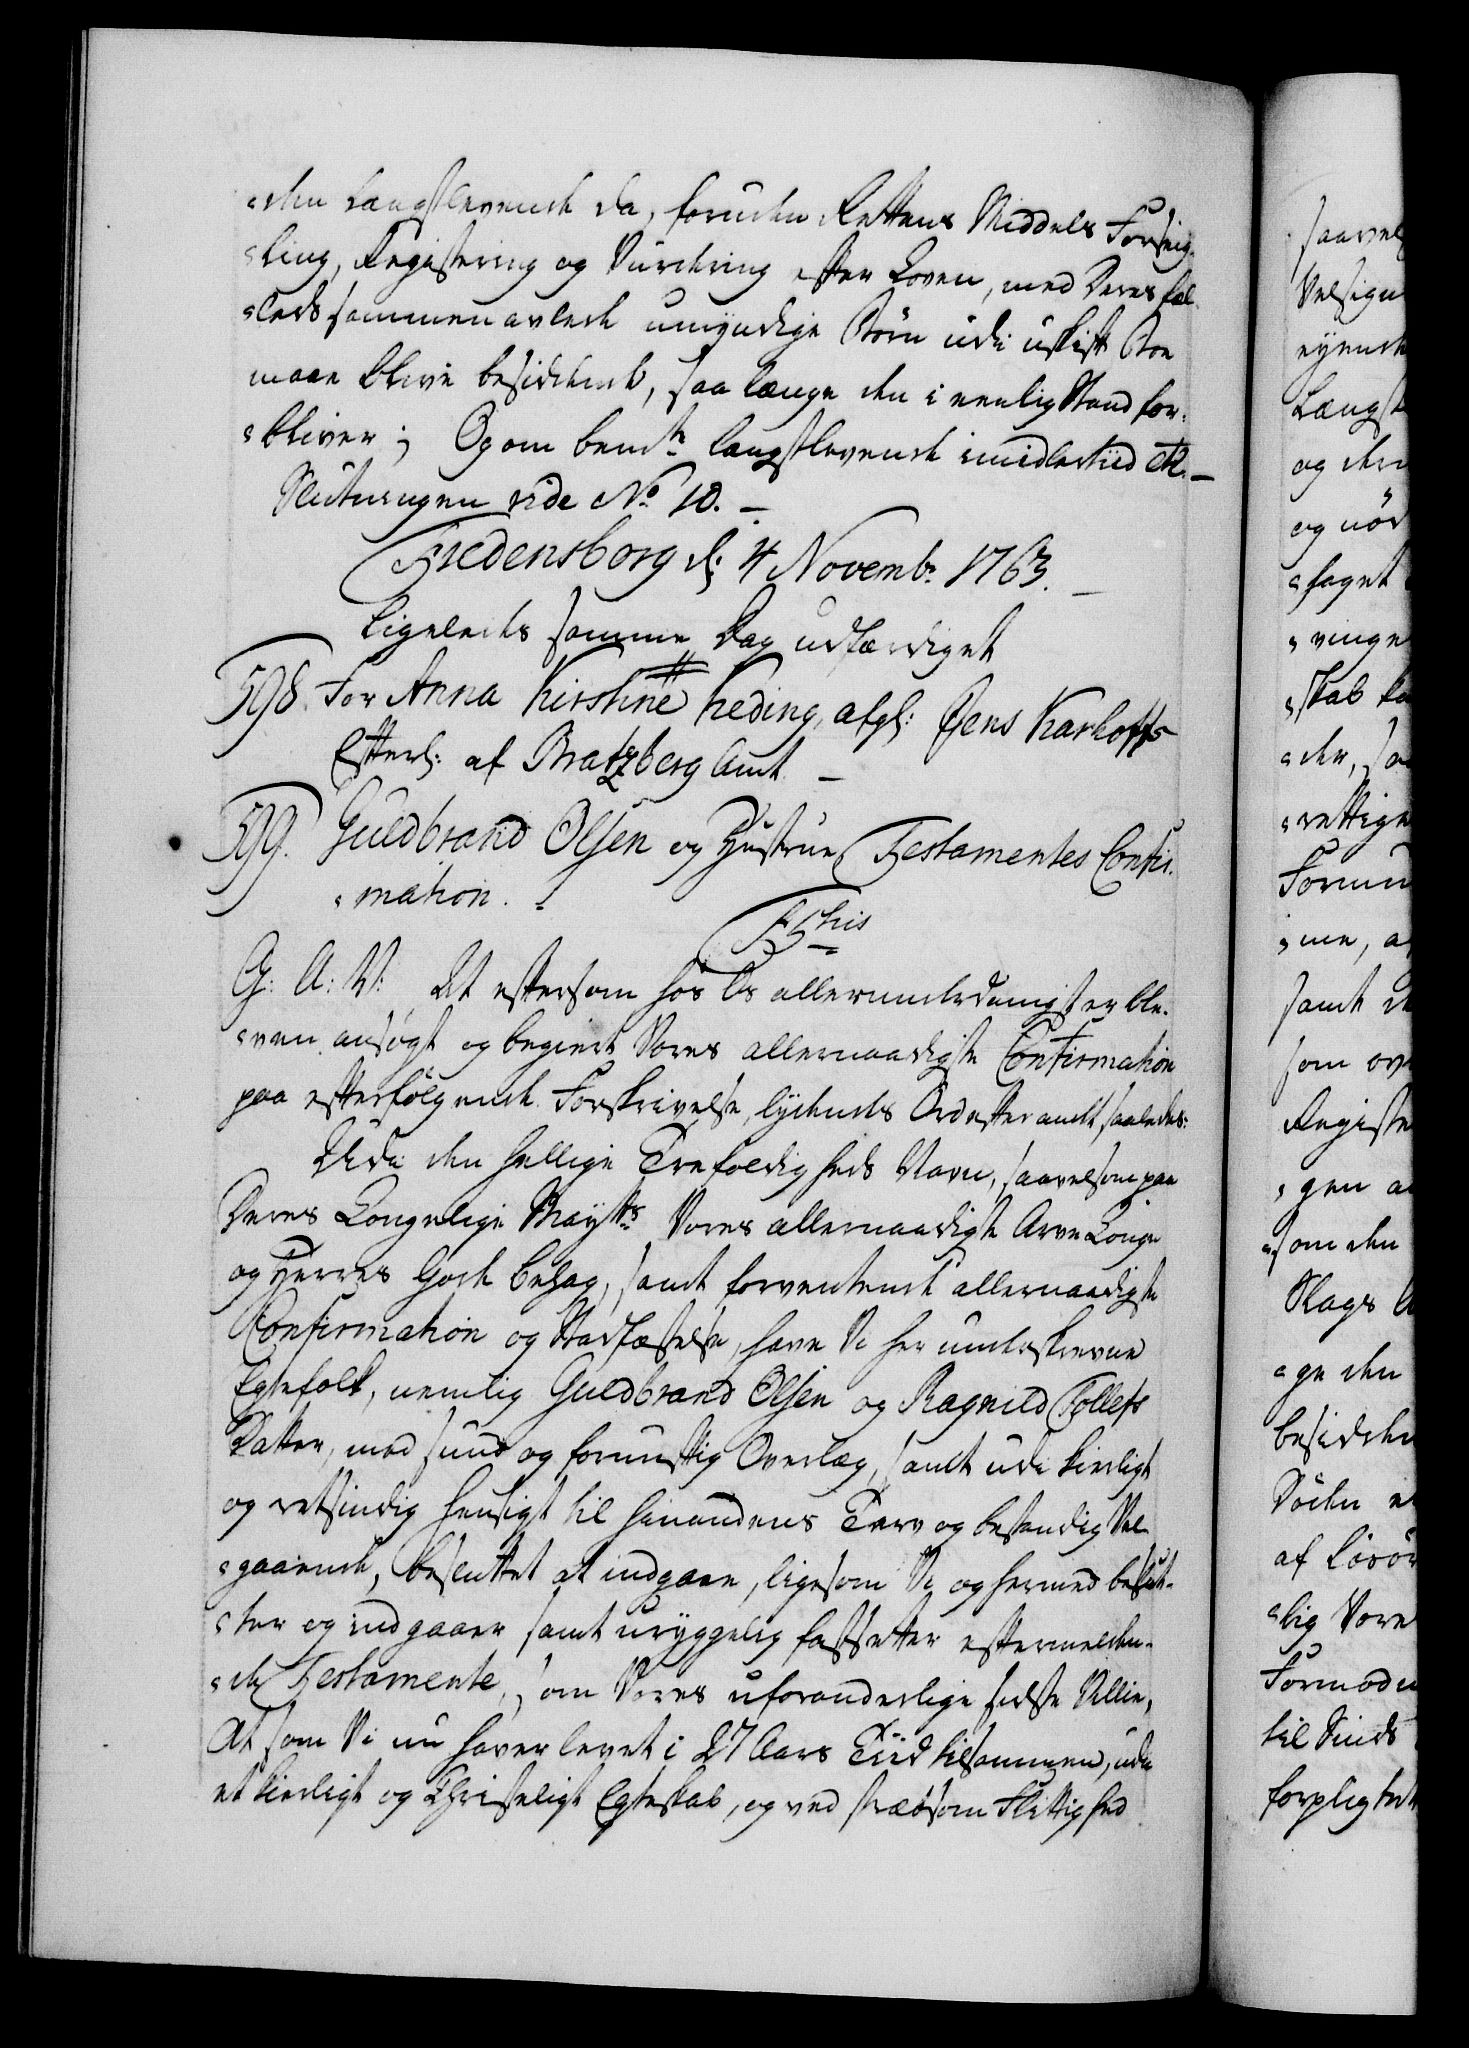 den Længstlevende da, foruden Rettens Middels Forseig-
ling, Registering og Vurdering efter Loven, med Deres fæl-
leds sammenavlede umyndige Børn udi uskift Boe
maae blive besiddende, saa længe den i eenlig Stand for-
bliver; Og om bemte længstlevende imidlertiid etc. —
Slutningen vide No 10. —
Fredensborg d: 4 Novembr 1763. —
Ligeleedes samme Dag udfærdiget
598. For Anna Kirstine Keding, afgl: Jens Karhoffs
Efterl: af Bratzberg Amt. —
599. Guldbrand Olsen og Hustrue Testamentes Confir-
mation. —
F5this
G: A: V: At eftersom hos Os allerunderdanigst er ble-
ven ansøgt og begiert Vores allernaadigste Confirmation
paa efterfølgende Forskrivelse, lydendes Ord efter andet saaledes:
Udi den hellige Trefoldigheds Navn, saavelsom paa
Deres Kongelige Maytts Vores allernaadigste Arve Konge
og Herres Gode behag, samt forventende allernaadigste
Confirmation og Stadfæstelse, have Vi her underskrevne
Egtefolk, nemlig Guldbrand Olsen og Ragnild Tollefs
Datter, med sund og fornuftig Overlæg, samt udi kierligt
og retsindig hensigt til hinandens Tarv og bestandig Vel-
gaaende, besluttet at indgaae, ligesom Vi og hermed beslut-
ter og indgaaer samt uryggelig fastsetter eftermelden-
de Testamente, som Vores uforanderlige sidste Villie,
At som Vi nu haver levet i 27 Aars Tiid tilsammen, udi
et kierligt og Christeligt Egteskab, og ved stræbsom Flittighed
saavel
Velsign
eyende
Længst
og den
og nød
faget
vinge
skab ka
der, sa
rettige
Forun
me, a
samt d
som ov
Registe
gen a
som den
Slags
ge den
besidde
Döden e
af Løsör
lig Vore
Formod
til Sinds
forpligtet